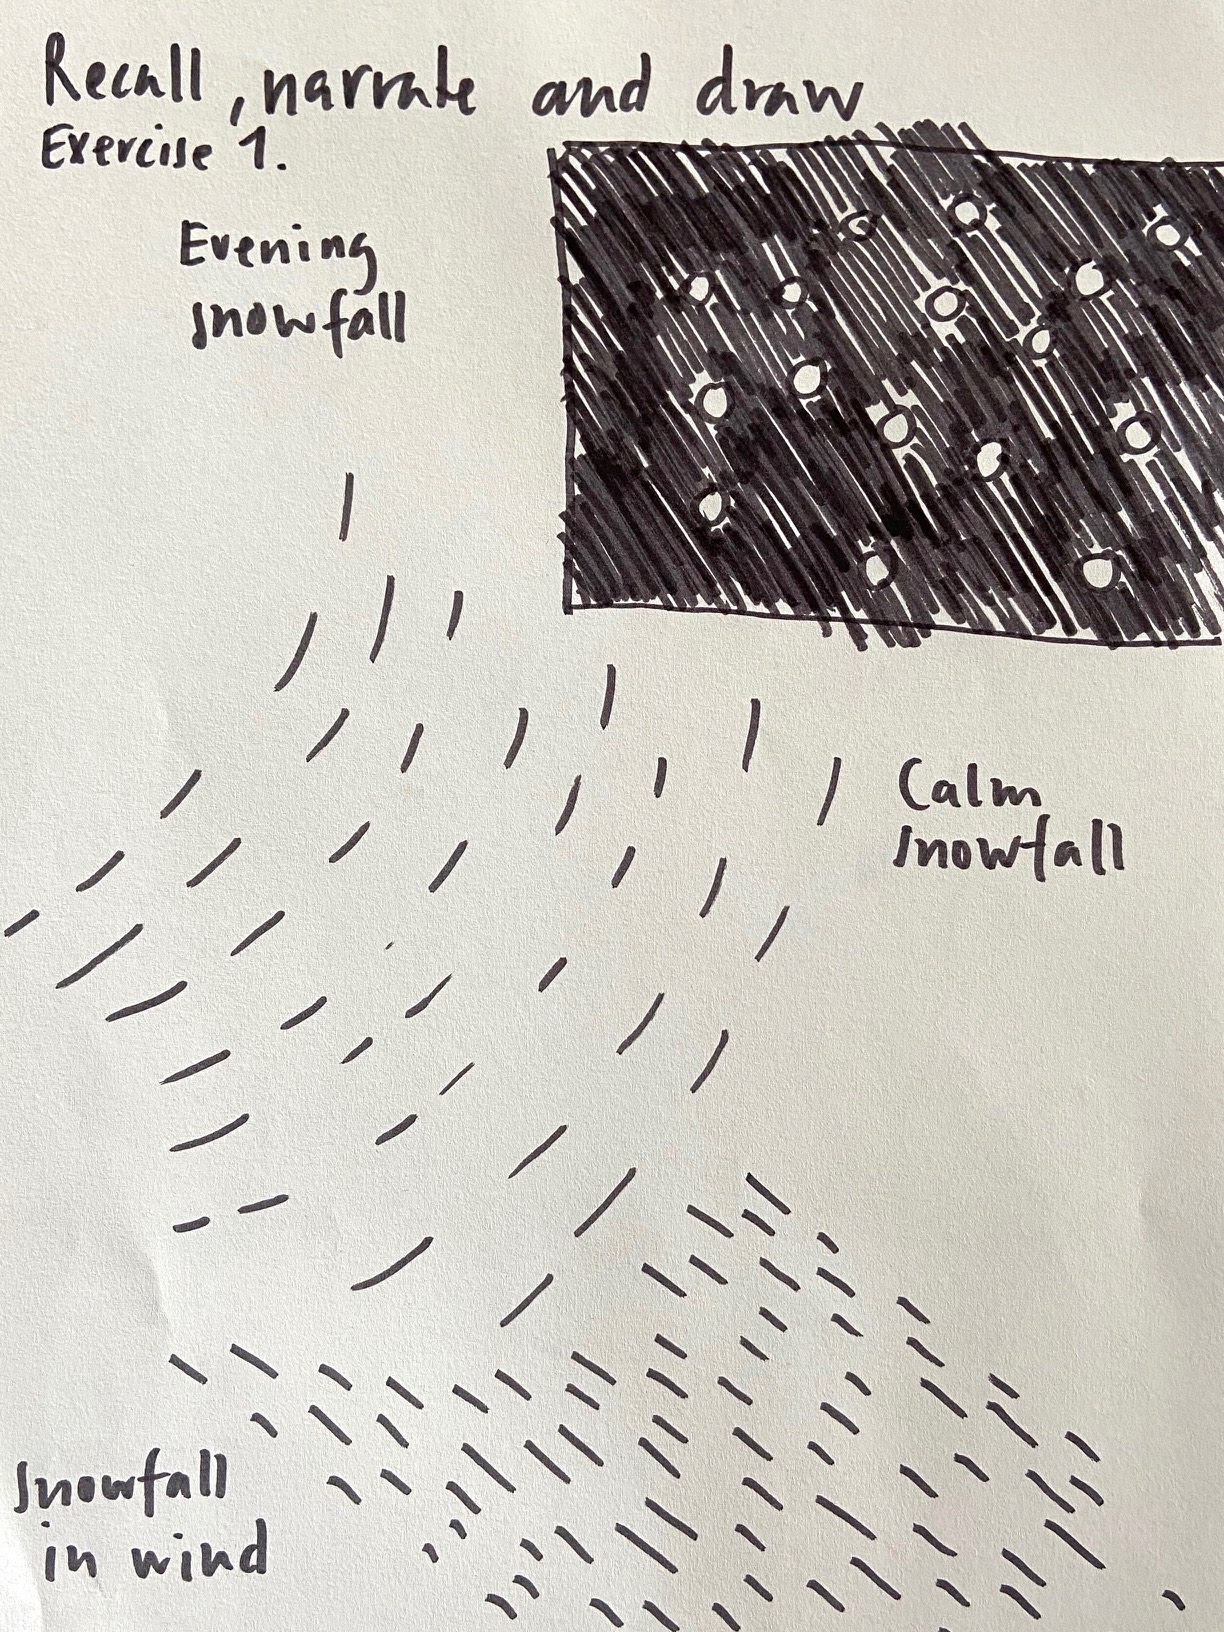 Recall, narrate and draw
Exercise 1.
Evening
snowfall
Calm
snowfall
snowfall
in wind